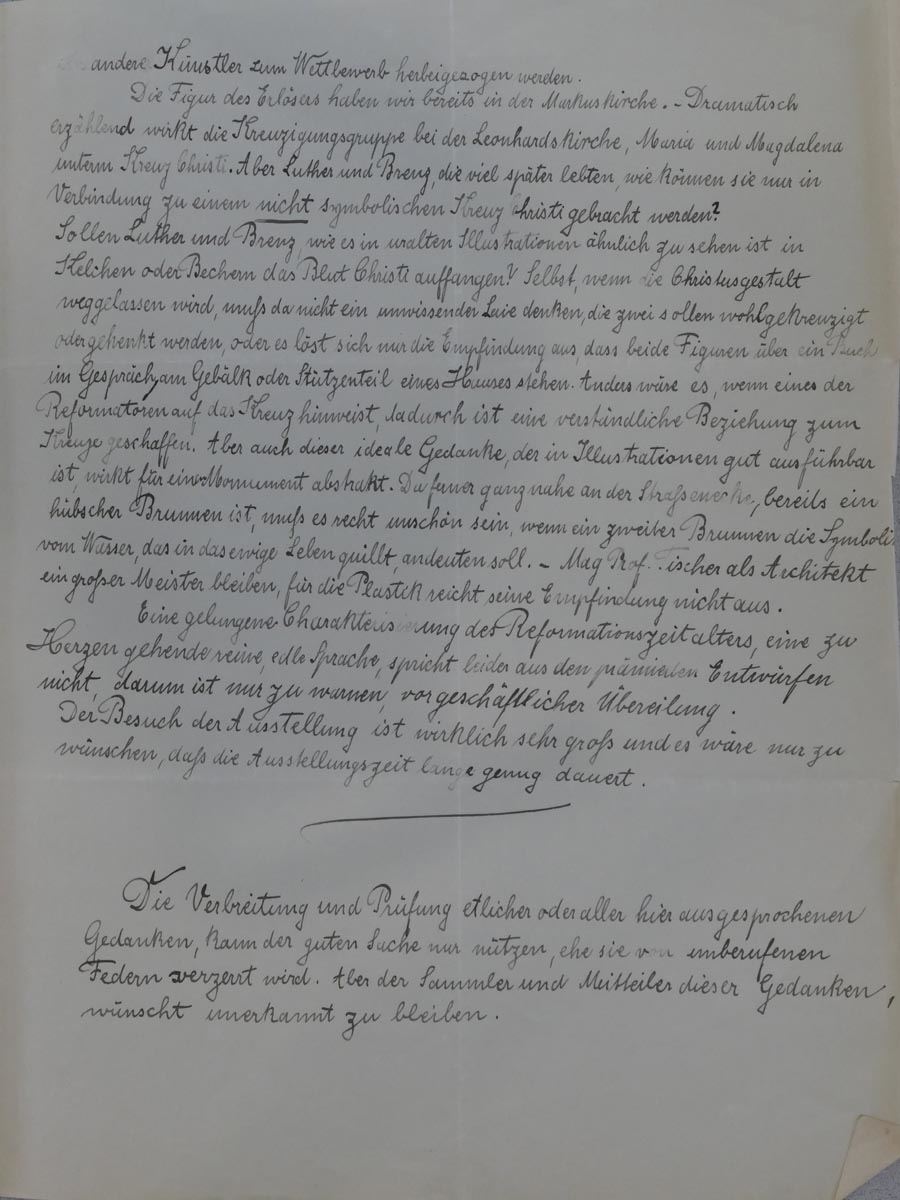 andere Künstler zum Wettbewerb herbeigezogen werden.
Die Figur des Erlösers haben wir bereits in der Markuskirche. - Dramatisch
erzählend wirkt die Kreuzigungsgruppe bei der Leonhardskirche, Maria und Magdalena
unterm Kreuz Christi. Aber Luther und Brenz, die viel später lebten, wie können sie nur in
Verbindung zu einem nicht symbolischen Kreuz Christi gebracht werden?
Sollen Luther und Brenz, wie es in uralten Illustrationen ähnlich zu sehen ist in
Kelchen oder Bechern das Blut Christi auffangen? Selbst, wenn die Christusgestalt
weggelassen wird, muß da nicht ein unwissender Laie denken, die zwei sollen wohl gekreuzigt
oder gehenkt werden, oder es löst sich nur die Empfindung aus, dass beide Figuren über ein Buch
im Gespräch, am Gebälk oder Stützenteil eines Hauses stehen. Anders wäre es, wenn eines der
Reformatoren auf das Kreuz hinweist, dadurch ist eine verständliche Beziehung zum
Kreuze geschaffen. Aber auch dieser ideale Gedanke, der in Illustrationen gut ausführbar
ist, wirkt für ein Monument abstrakt. Da ferner ganz nahe an der Straßenecke, bereits ein
hübscher Brunnen ist, muß es recht unschön sein, wenn ein zweiter Brunnen die Symboli
vom Wasser, das in das ewige Leben quillt, andeuten soll. - Mag Prof. Fischer als Architekt
ein großer Meister bleiben, für die Plastik reicht seine Empfindung nicht aus.
Eine gelungene Charakterisierung des Reformationszeitalters, eine zu
Herzen gehende reine, edle Sprache, spricht leider aus den prämierten Entwürfen
nicht, darum ist nur zu warnen, vor geschäftlicher Übereilung.
Der Besuch der Ausstellung ist wirklich sehr groß und es wäre nur zu
wünschen, daß die Ausstellungszeit lange genug dauert.
Die Verbreitung und Prüfung etlicher oder aller hier ausgesprochenen
Gedanken, kann der guten Sache nur nützen, ehe sie von unberufenen
Federn verzerrt wird. Aber der Sammler und Mitteiler dieser Gedanken,
wünscht unerkannt zu bleiben.